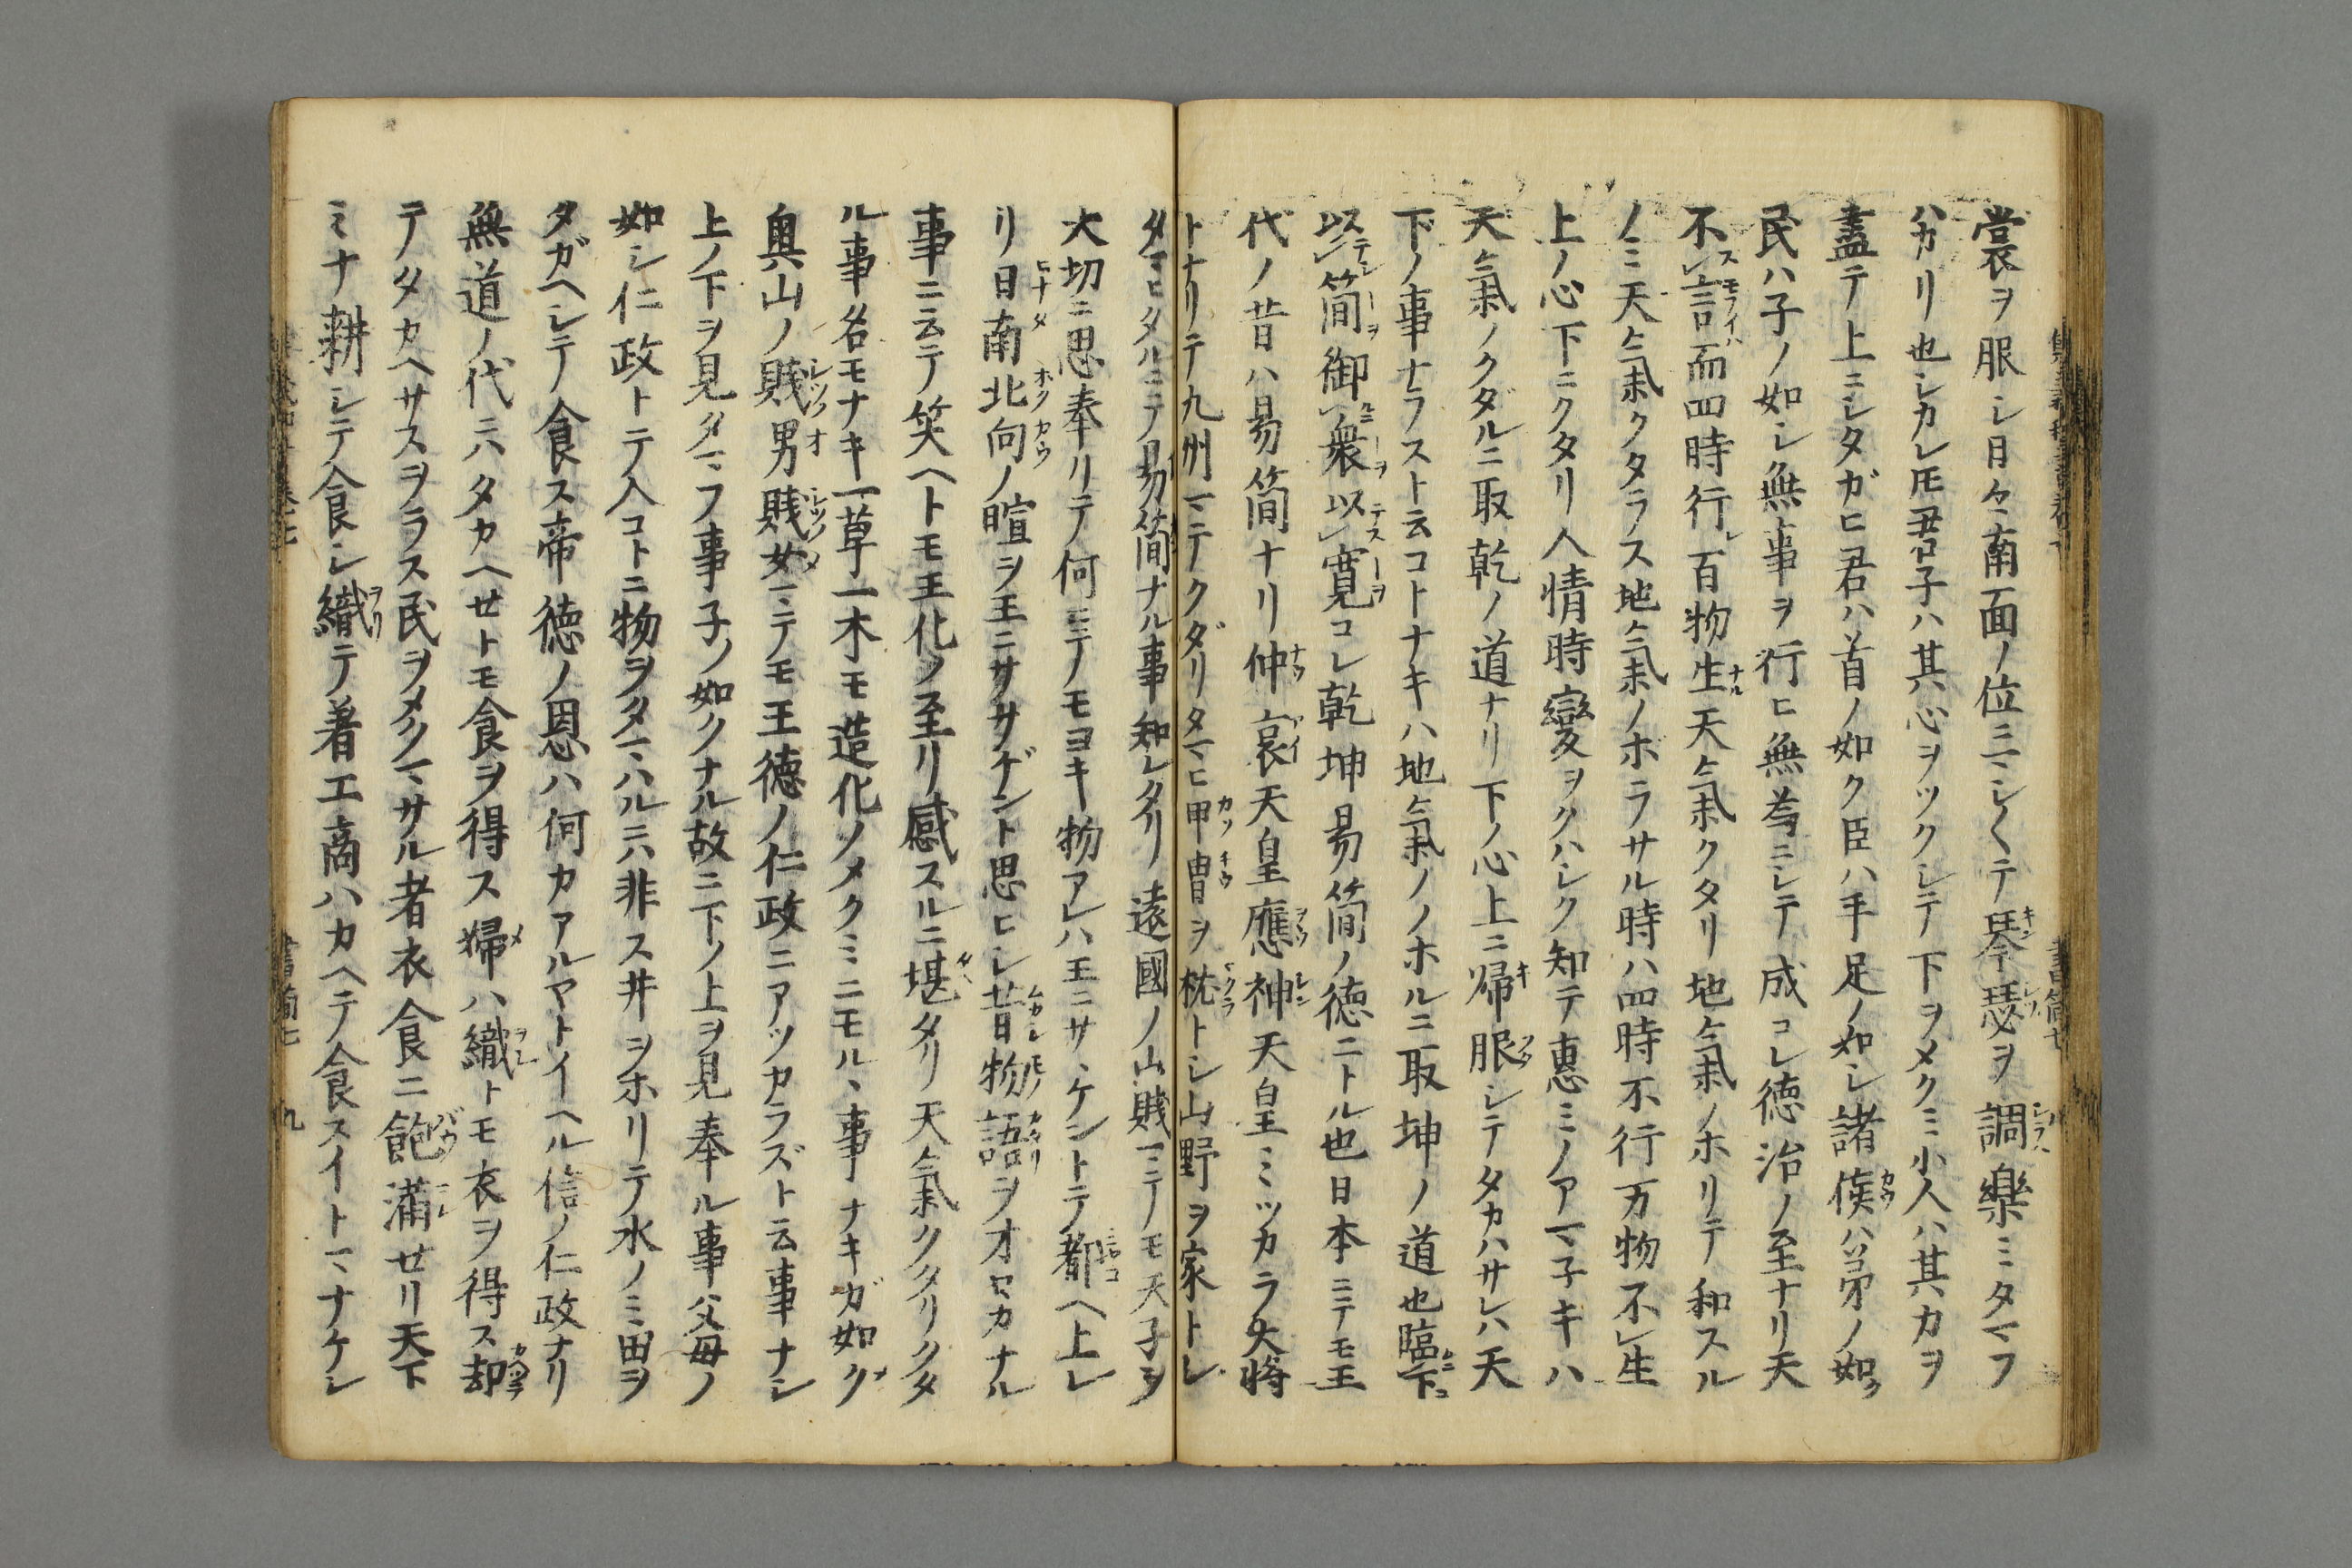 裳ヲ服シ日々南面ノ位ニマシ〱テ琴瑟ヲ調樂ミタマフ
ハカリ也シカレ𪜈君子ハ其心ヲツクシテ下ヲメクミ小人ハ其力ヲ
盡テ上ニシタガヒ君ハ首ノ如ク臣ハ手足ノ如シ諸侯ハ弟ノ如ク
民ハ子ノ如シ無事ヲ行ヒ無為ニシテ成コレ徳治ノ至ナリ天
不レ言而四時行レ百物生天氣クタリ地氣ノホリテ和スル
ノミ天氣クタラス地氣ノホラサル時ハ四時不行万物不レ生
上ノ心下ニクタリ人情時變ヲクハシク知テ惠ミノアマ子キハ
天氣ノクダルニ取乾ノ道ナリ下ノ心上ニ帰服シテタカハサレハ天
下ノ事ナラスト云コトナキハ地氣ノノホルニ取坤ノ道也臨下
以レ簡御レ衆以レ寛コレ乾坤易簡ノ徳ニトル也日本ニテモ王
代ノ昔ハ易簡ナリ仲哀天皇應神天皇ミツカラ大將
トナリテ九州マテクダリタマヒ甲冑ヲ枕トシ山野ヲ家トシ
タマヒタルニテ易簡ナル事知レタリ遠國ノ山賎マテモ天子ヲ
大切ニ思奉リテ何ニテノモヨキ物アレハ王ニサヽケントテ都ヘ上レ
リ日南北向ノ暄ヲ王ニササゲント思ヒシ昔物語ヲオロカナル
事ニ云テ笑ヘトモ王化ノ至リ感スルニ堪タリ天氣クタリクタ
ル事名モナキ一草一木モ造化ノメクミニモルヽ事ナキガ如ク
奥山ノ賎男賎女マテモ王徳ノ仁政ニアツカラズト云事ナシ
上ノ下ヲ見タマフ事子ノ如クナル故ニ下ノ上ヲ見奉ル事父母ノ
如シ仁政トテ人コトニ物ヲタマハルニハ非ス井ヲホリテ水ノミ田ヲ
タガヘシテ食ス帝徳ノ恩ハ何カアルヤトイヘル信ノ仁政ナリ
無道ノ代ニハタカヘセトモ食ヲ得ス婦ハ織トモ衣ヲ得ス却
テタカヘサスヲラス民ヲメクマサル者衣食ニ飽満セリ天下
ミナ耕シテ食シ織テ着工商ハカヘテ食スイトマナケレ
書簡七
書簡七 九